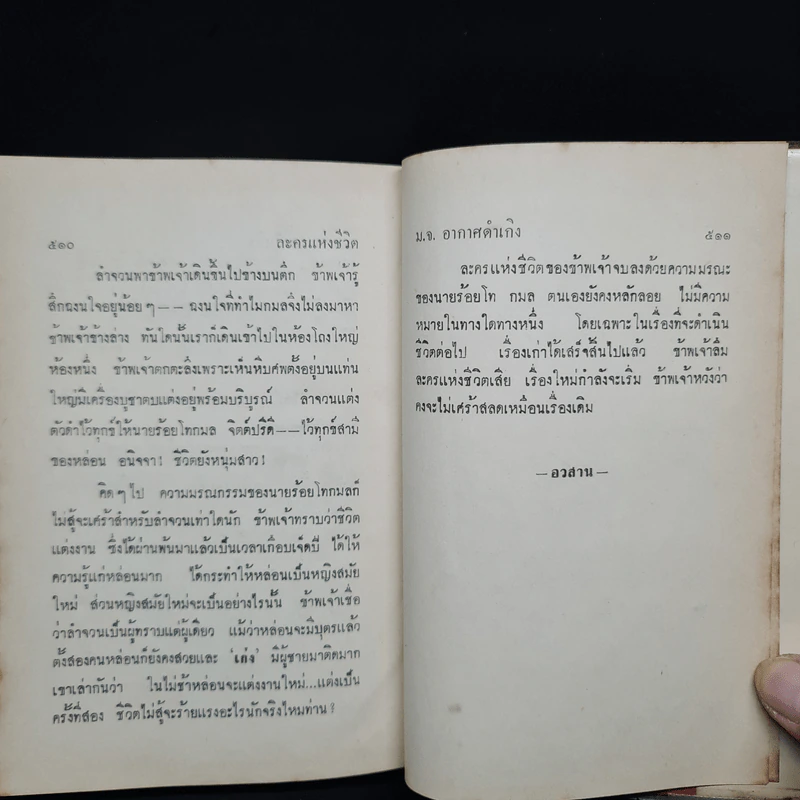 ๕๑๐ ละครแห่งชีวิต
ลำจวนพาข้าพเจ้าเดินขึ้นไปข้างบนตึก ข้าพเจ้ารู้
สึกฉงนใจอยู่น้อยๆ——ฉงนใจที่ทำไมกมลจึงไม่ลงมาหา
ข้าพเจ้าข้างล่าง ทันใดนั้นเราก็เดินเข้าไปในห้องโถงใหญ่
ห้องหนึ่ง ข้าพเจ้าตกตะลึงเพราะเห็นหีบศพตั้งอยู่บนแท่น
ใหญ่มีเครื่องบูชาตบแต่งอยู่พร้อมบริบูรณ์ ลำจวนแต่ง
ตัวดำไว้ทุกข์ให้นายร้อยโทกมล จิตต์ปรีดี——ไว้ทุกข์สามี
ของหล่อน อนิจจา! ชีวิตยังหนุ่มสาว!
คิดๆไป ความมรณกรรมของนายร้อยโทกมลก็
ไม่สู้จะเศร้าสำหรับลำจวนเท่าใดนัก ข้าพเจ้าทราบว่าชีวิต
แต่งงาน ซึ่งได้ผ่านพ้นมาแล้วเป็นเวลาเกือบเจ็ดปี ได้ให้
ความรู้แก่หล่อนมาก ได้กระทำให้หล่อนเป็นหญิงสมัย
ใหม่ ส่วนหญิงสมัยใหม่จะเป็นอย่างไรนั้น ข้าพเจ้าเชื่อ
ว่าลำจวนเป็นผู้ทราบแต่ผู้เดียว แม้ว่าหล่อนจะมีบุตรแล้ว
ตั้งสองคนหล่อนก็ยังคงสวยและ ‘เก๋ง’ มีผู้ชายมาติดมาก
เขาเล่ากันว่า ในไม่ช้าหล่อนจะแต่งงานใหม่...แต่งเป็น
ครั้งที่สอง ชีวิตไม่สู้จะร้ายแรงอะไรนักจริงไหมท่าน?
ม.จ. อากาศดำเกิง ๕๑๑
ละครแห่งชีวิตของข้าพเจ้าจบลงด้วยความมรณะ
ของนายร้อยโท กมล ตนเองยังคงหลักลอย ไม่มีความ
หมายในทางใดทางหนึ่ง โดยเฉพาะในเรื่องที่จะดำเนิน
ชีวิตต่อไป เรื่องเก่าได้เสร็จสิ้นไปแล้ว ข้าพเจ้าลืม
ละครแห่งชีวิตเสีย เรื่องใหม่กำลังจะเริ่ม ข้าพเจ้าหวังว่า
คงจะไม่เศร้าสลดเหมือนเรื่องเดิม
—อวสาน—